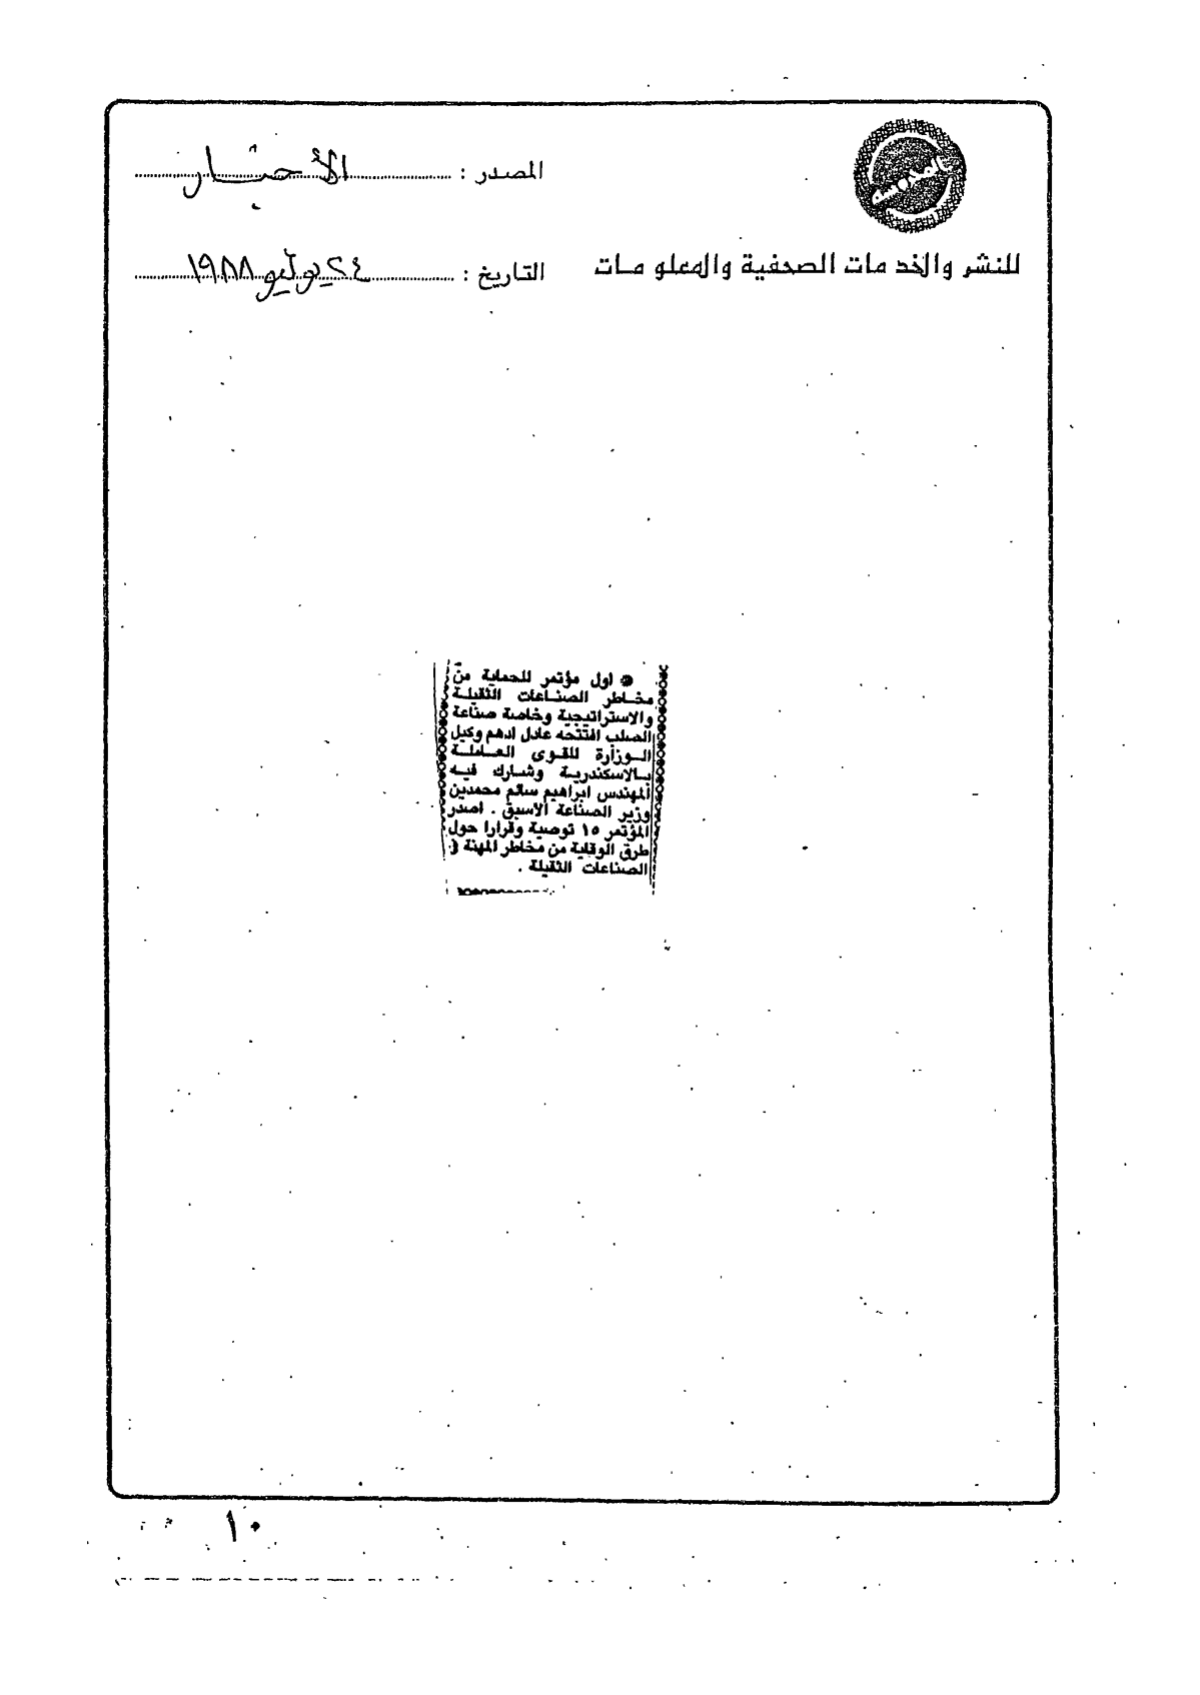 المصدر : الأخبار
للنشر والخدمات الصحفية والمعلومات
التاريخ : ٢٤ يوليو ١٩٨٨
● اول مؤتمر للحماية من
مخاطر الصناعات الثقيلة
والاستراتيجية وخاصة صناعة
الصلب افتتحه عادل ادهم وكيل
الوزارة للقوى العاملة
بالاسكندرية وشارك فيه
المهندس ابراهيم سالم محمدين
وزير الصناعة الاسبق . اصدر
المؤتمر ١٥ توصية وقرارا حول
طرق الوقاية من مخاطر المهنة في
الصناعات الثقيلة .
١٠